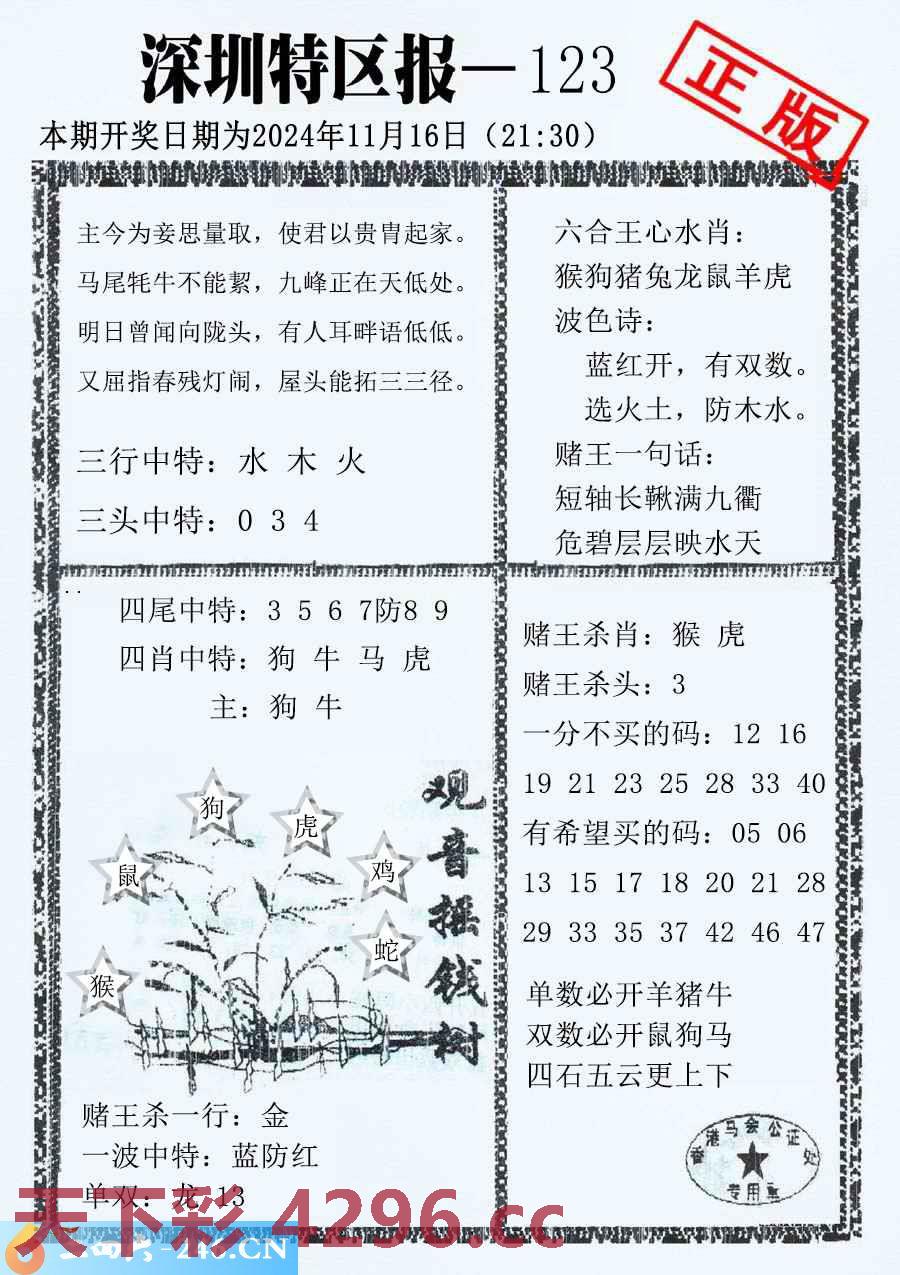 深圳特区报—123
正版
本期开奖日期为2024年11月16日（21:30）
主今为妾思量取，使君以贵胄起家。
马尾牦牛不能絮，九峰正在天低处。
明日曾闻向陇头，有人耳畔语低低。
又屈指春残灯闹，屋头能拓三三径。
三行中特：水 木 火
三头中特：0 3 4
六合王心水肖：
猴狗猪兔龙鼠羊虎
波色诗：
蓝红开，有双数。
选火土，防木水。
赌王一句话：
短轴长鞦满九衢
危碧层层映水天
四尾中特：3 5 6 7防8 9
四肖中特：狗 牛 马 虎
主：狗 牛
狗
虎
鼠
鸡
蛇
猴
观音摇钱树
赌王杀一行：金
一波中特：蓝防红
单双：龙 13
赌王杀肖：猴 虎
赌王杀头：3
一分不买的码：12 16
19 21 23 25 28 33 40
有希望买的码：05 06
13 15 17 18 20 21 28
29 33 35 37 42 46 47
单数必开羊猪牛
双数必开鼠狗马
四石五云更上下
香港马会公证处
专用章
天下彩 4296.cc